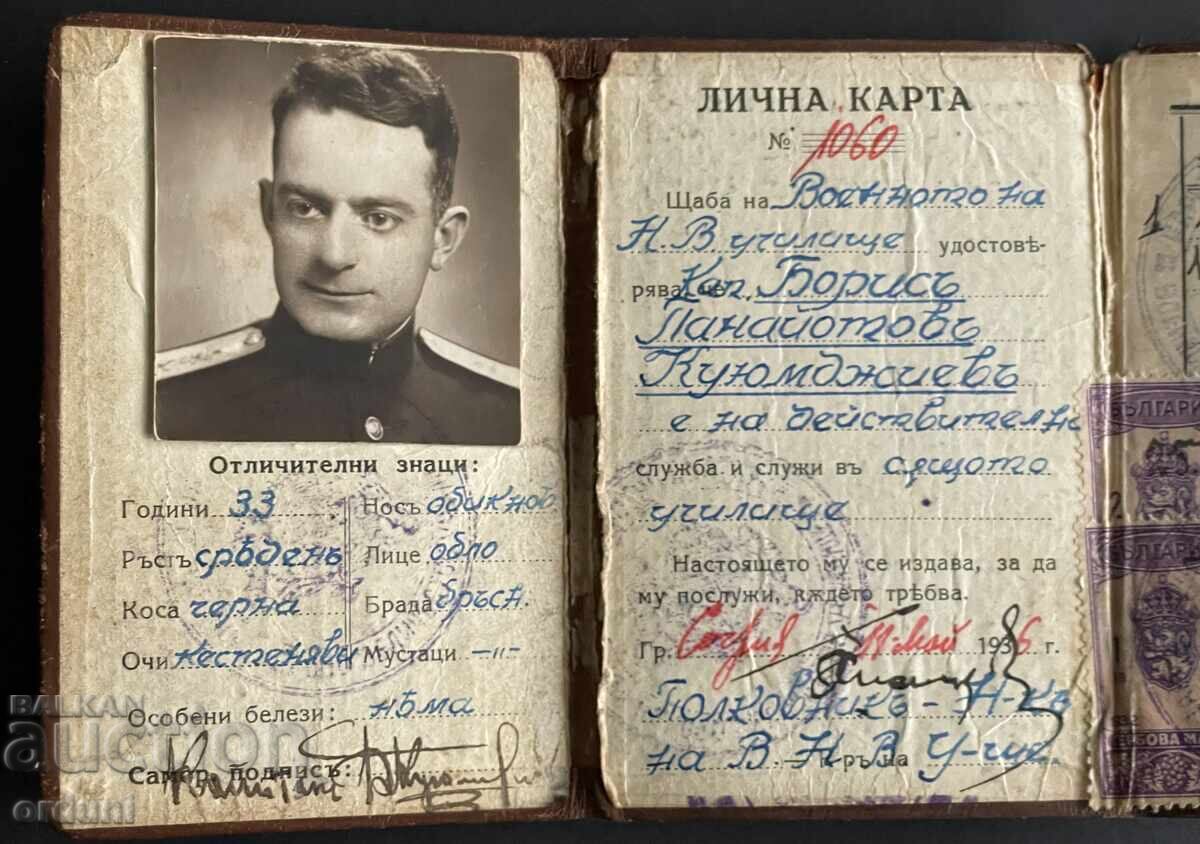 Отличителни знаци:
Години 33
Носъ обикнов
Ръстъ срѣденъ
Лице обло
Коса черна
Брада бръсн.
Очи кестеняви
Мустаци -„-
Особени белези: нѣма
Самор. подписъ:
ЛИЧНА КАРТА
№ 1060
Щаба на Военното на
Н. В. училище удостовѣ-
рява, че Кап. Борисъ
Панайотовъ
Куюмджиевъ
е на действителна
служба и служи въ сѫщото
училище
Настоящето му се издава, за да
му послужи, кѫдето трѣбва.
Гр. София май 1936 г.
Полковникъ - Н-къ
на В. Н. В. У-ще
БЪЛГАРИ
БЪЛГАРИ
BALKAN
auction
orduni